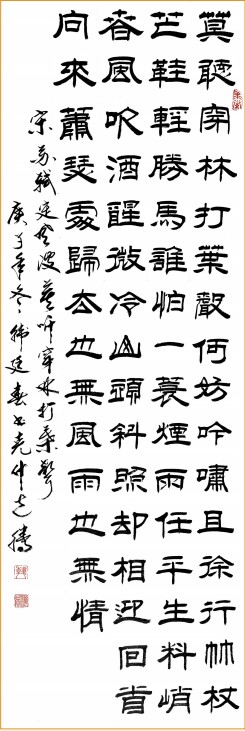 莫聽穿林打葉聲何妨吟嘯且徐行竹杖
芒鞋輕勝馬誰怕一蓑煙雨任平生料峭
春風吹酒醒微冷山頭斜照却相迎回首
向來蕭瑟處歸去也無風雨也無情
宋苏軾定風波莫听穿林打葉聲
庚子年冬